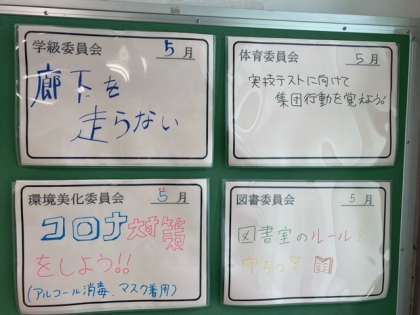 学級委員会 5月
廊下を
走らない
体育委員会 5月
実技テストに向けて
集団行動を覚えよう!
環境美化委員会 5月
コロナ対策
をしよう!!
(アルコール消毒、マスク着用)
図書委員会 5月
図書室のルール